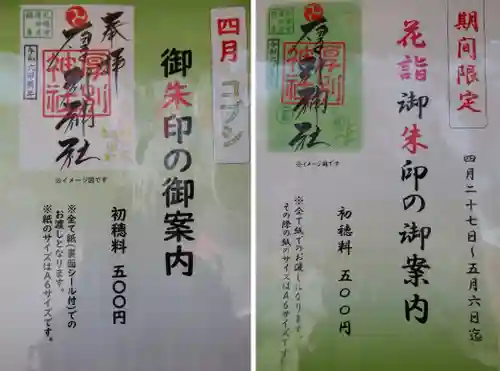 四月 コブシ
御朱印の御案内
奉拝
厚別神社
厚別
神社
※イメージ図です
初穂料 五〇〇円
※全て紙(裏面シール付)での
お渡しとなります。
※紙のサイズはA6サイズです。
期間限定
四月二十七日～五月六日迄
花詣御朱印の御案内
厚別神社
厚別
神社
※イメージ図です
初穂料 五〇〇円
※全て紙でのお渡しになります。
その際の紙のサイズはA6サイズです。